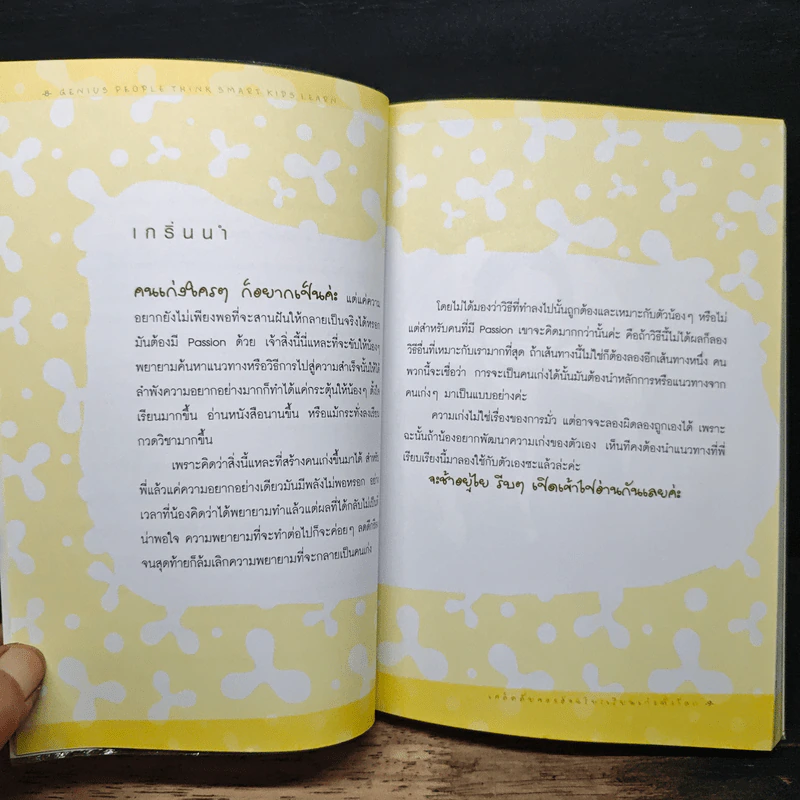 GENIUS PEOPLE THINK SMART KIDS LEARN
เกริ่นนำ
คนเก่งใครๆ ก็อยากเป็นค่ะ แต่แค่ความ
อยากยังไม่เพียงพอที่จะสานฝันให้กลายเป็นจริงได้หรอก
มันต้องมี Passion ด้วย เจ้าสิ่งนี้นี่แหละที่จะขับให้น้องๆ
พยายามค้นหาแนวทางหรือวิธีการไปสู่ความสำเร็จนั้นให้ได้
ลำพังความอยากอย่างมากก็ทำได้แค่กระตุ้นให้น้องๆ ตั้งใจ
เรียนมากขึ้น อ่านหนังสือนานขึ้น หรือแม้กระทั่งลงเรียน
กวดวิชามากขึ้น
เพราะคิดว่าสิ่งนี้แหละที่สร้างคนเก่งขึ้นมาได้ สำหรับ
พี่แล้วแค่ความอยากอย่างเดียวมันมีพลังไม่พอหรอก อย่าง
เวลาที่น้องคิดว่าได้พยายามทำแล้วแต่ผลที่ได้กลับไม่เป็นที่
น่าพอใจ ความพยายามที่จะทำต่อไปก็จะค่อยๆ ลดดีกรีลง
จนสุดท้ายก็ล้มเลิกความพยายามที่จะกลายเป็นคนเก่ง
โดยไม่ได้มองว่าวิธีที่ทำลงไปนั้นถูกต้องและเหมาะกับตัวน้องๆ หรือไม่
แต่สำหรับคนที่มี Passion เขาจะคิดมากกว่านั้นค่ะ คือถ้าวิธีนี้ไม่ได้ผลก็ลอง
วิธีอื่นที่เหมาะกับเรามากที่สุด ถ้าเส้นทางนี้ไม่ใช่ก็ต้องลองอีกเส้นทางหนึ่ง คน
พวกนี้จะเชื่อว่า การจะเป็นคนเก่งได้นั้นมันต้องนำหลักการหรือแนวทางจาก
คนเก่งๆ มาเป็นแบบอย่างค่ะ
ความเก่งไม่ใช่เรื่องของการมั่ว แต่อาจจะลองผิดลองถูกเองได้ เพราะ
ฉะนั้นถ้าน้องอยากพัฒนาความเก่งของตัวเอง เห็นทีคงต้องนำแนวทางที่พี่
เรียบเรียงนี้มาลองใช้กับตัวเองซะแล้วล่ะค่ะ
จะช้าอยู่ไย รีบๆ เปิดเข้าไปอ่านกันเลยค่ะ